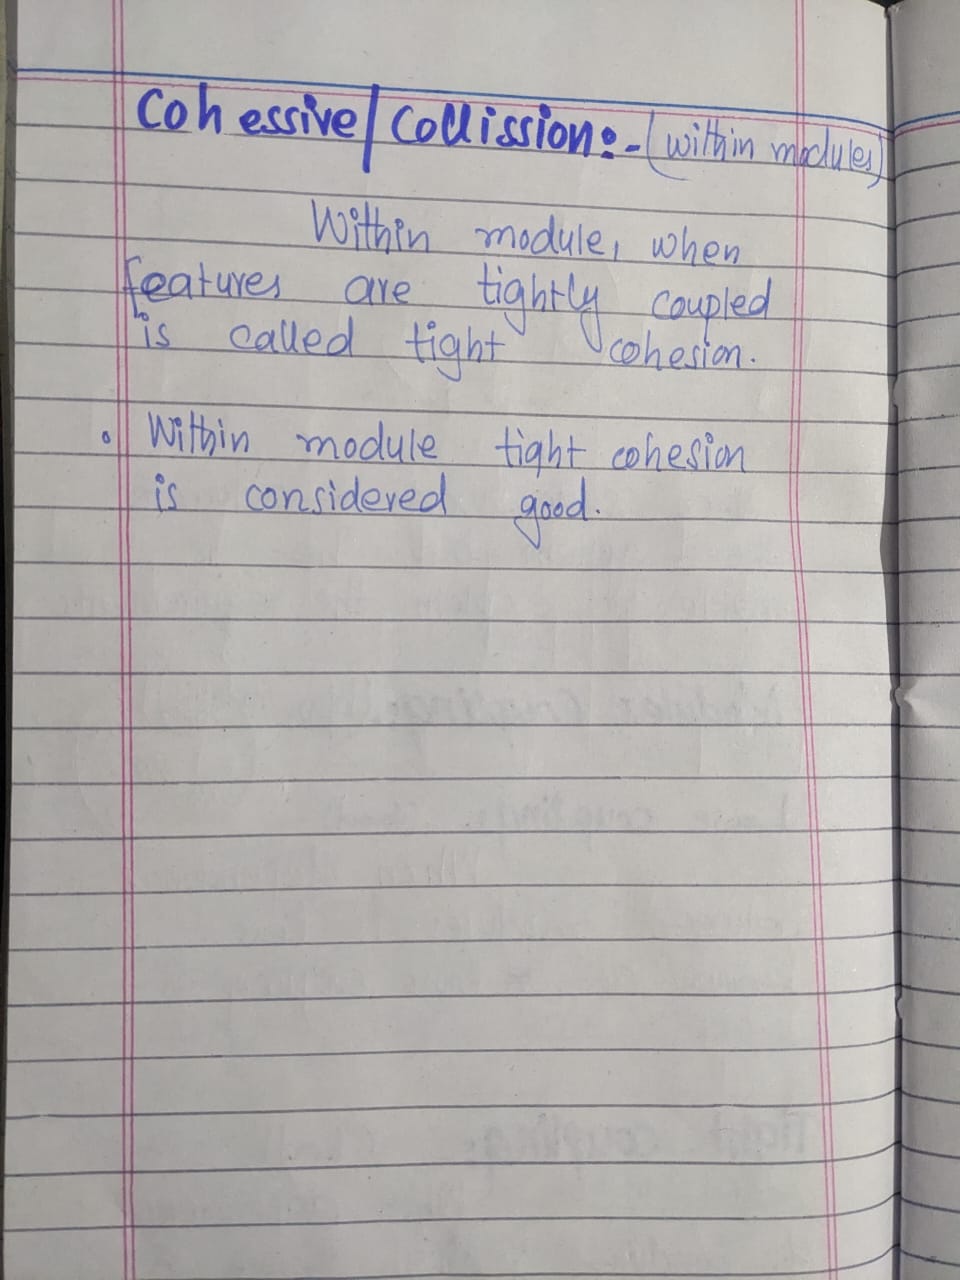 Cohessive/Collission:-(within modules)
Within module, when
features are tightly coupled
is called tight cohesion.
• Within module tight cohesion
is considered good.